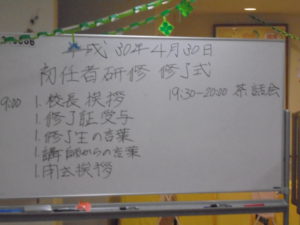 平成30年4月30日
初任者研修 修了式
19:30-20:00 茶話会
9:00 1.校長挨拶
1.修了証授与
1.修了生の言葉
1.講師からの言葉
1.閉会挨拶